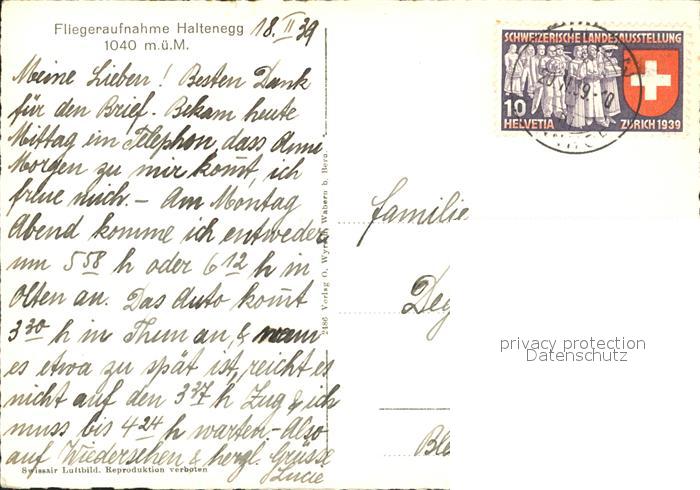 Fliegeraufnahme Haltenegg
1040 m.ü.M.
18. II 39
Meine Lieben! Besten Dank
für den Brief. Bekam heute
Mittag ein Telephon, dass
Morgen zu mir kom̄t, ich
freue mich. – Am Montag
Abend komme ich entweder
um 5 58 h oder 6 12 h in
Olten an. Das Auto kom̄t
3 30 h in Thun an, & wenn
es etwa zu spät ist, reicht es
nicht auf den 3 37 h Zug & ich
muss bis 4 24 h warten. Also
auf Wiedersehen & herzl. Grüsse
Lucie
Swissair Luftbild. Reproduktion verboten
2486 Verlag O. Wyrsch, Wabern b. Bern
SCHWEIZERISCHE LANDESAUSSTELLUNG
10
HELVETIA ZÜRICH 1939
Familie
Deg
privacy protection
Datenschutz
Ble